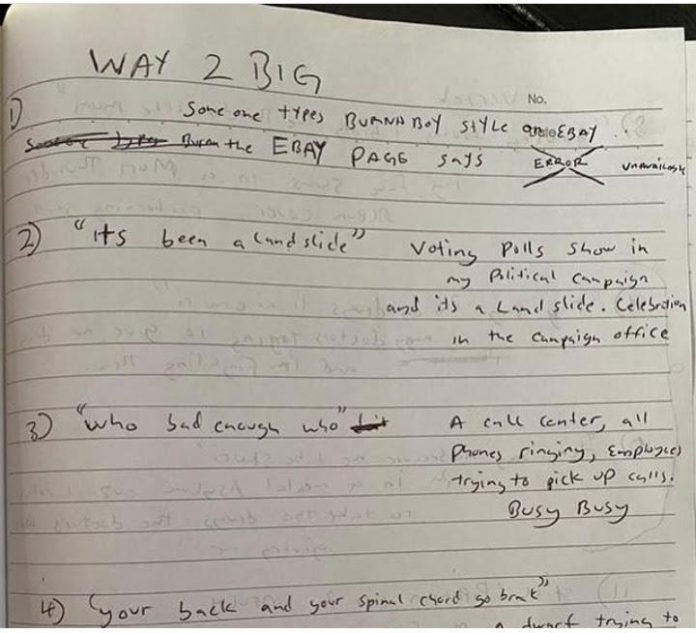 WAY 2 BIG
No.
1) Some one types BURNA BOY STYLE on EBAY
Burn the EBAY PAGE says ERROR
2) "its been a land slide" Voting Polls show in
my Political Campaign
and its a Land slide. Celebration
in the Campaign office
3) "who bad enough who" A call center, all
phones ringing, Employees
trying to pick up calls.
Busy Busy
4) "your back and your spinal chord go brak"
a dwarf trying to